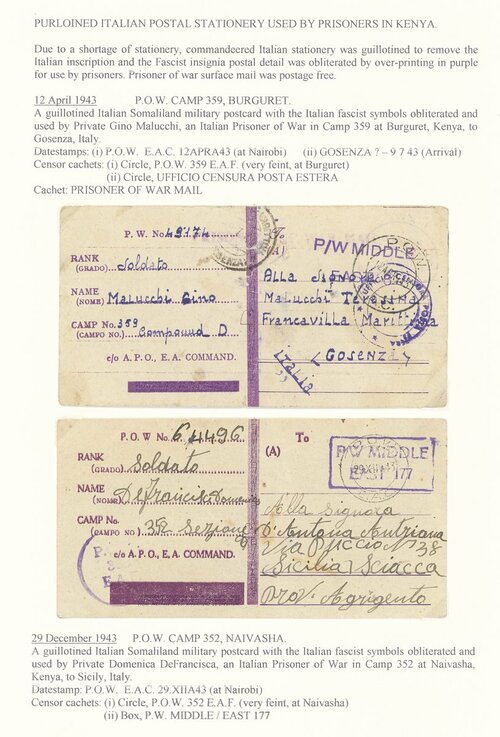 PURLOINED ITALIAN POSTAL STATIONERY USED BY PRISONERS IN KENYA.
Due to a shortage of stationery, commandeered Italian stationery was guillotined to remove the
Italian inscription and the Fascist insignia postal detail was obliterated by over-printing in purple
for use by prisoners. Prisoner of war surface mail was postage free.
12 April 1943 P.O.W. CAMP 359, BURGURET.
A guillotined Italian Somaliland military postcard with the Italian fascist symbols obliterated and
used by Private Gino Malucchi, an Italian Prisoner of War in Camp 359 at Burguret, Kenya, to
Gosenza, Italy.
Datestamps: (i) P.O.W. E.A.C. 12APRA43 (at Nairobi) (ii) GOSENZA ? – 9 7 43 (Arrival)
Censor cachets: (i) Circle, P.O.W. 359 E.A.F. (very feint, at Burguret)
(ii) Circle, UFFICIO CENSURA POSTA ESTERA
Cachet: PRISONER OF WAR MAIL
P. W. No 49174
RANK
(GRADO) Soldato
NAME
(NOME) Malucchi Gino
CAMP No. 359
(CAMPO NO.) Compound D
c/o A. P. O., E.A. COMMAND.
P/W MIDDLE
Alla Signora
Malucchi Teresina
Francavilla Marittima
(Gosenza)
Italia
P. O. W No. 64496
RANK
(GRADO) Soldato
NAME
(NOME) DeFrancisc
CAMP No.
(CAMPO NO) 352 Sezione
c/o A. P. O., E.A. COMMAND.
To
(A)
P/W MIDDLE
EAST 177
P.O.W.
29XII43
Alla Signora
D'Antona Antriana
Via N° 38
Sicilia Sciacca
Prov. Agrigento
29 December 1943 P.O.W. CAMP 352, NAIVASHA.
A guillotined Italian Somaliland military postcard with the Italian fascist symbols obliterated and
used by Private Domenica DeFrancisca, an Italian Prisoner of War in Camp 352 at Naivasha,
Kenya, to Sicily, Italy.
Datestamp: P.O.W. E.A.C. 29.XIIA43 (at Nairobi)
Censor cachets: (i) Circle, P.O.W. 352 E.A.F. (very feint, at Naivasha)
(ii) Box, P.W. MIDDLE / EAST 177